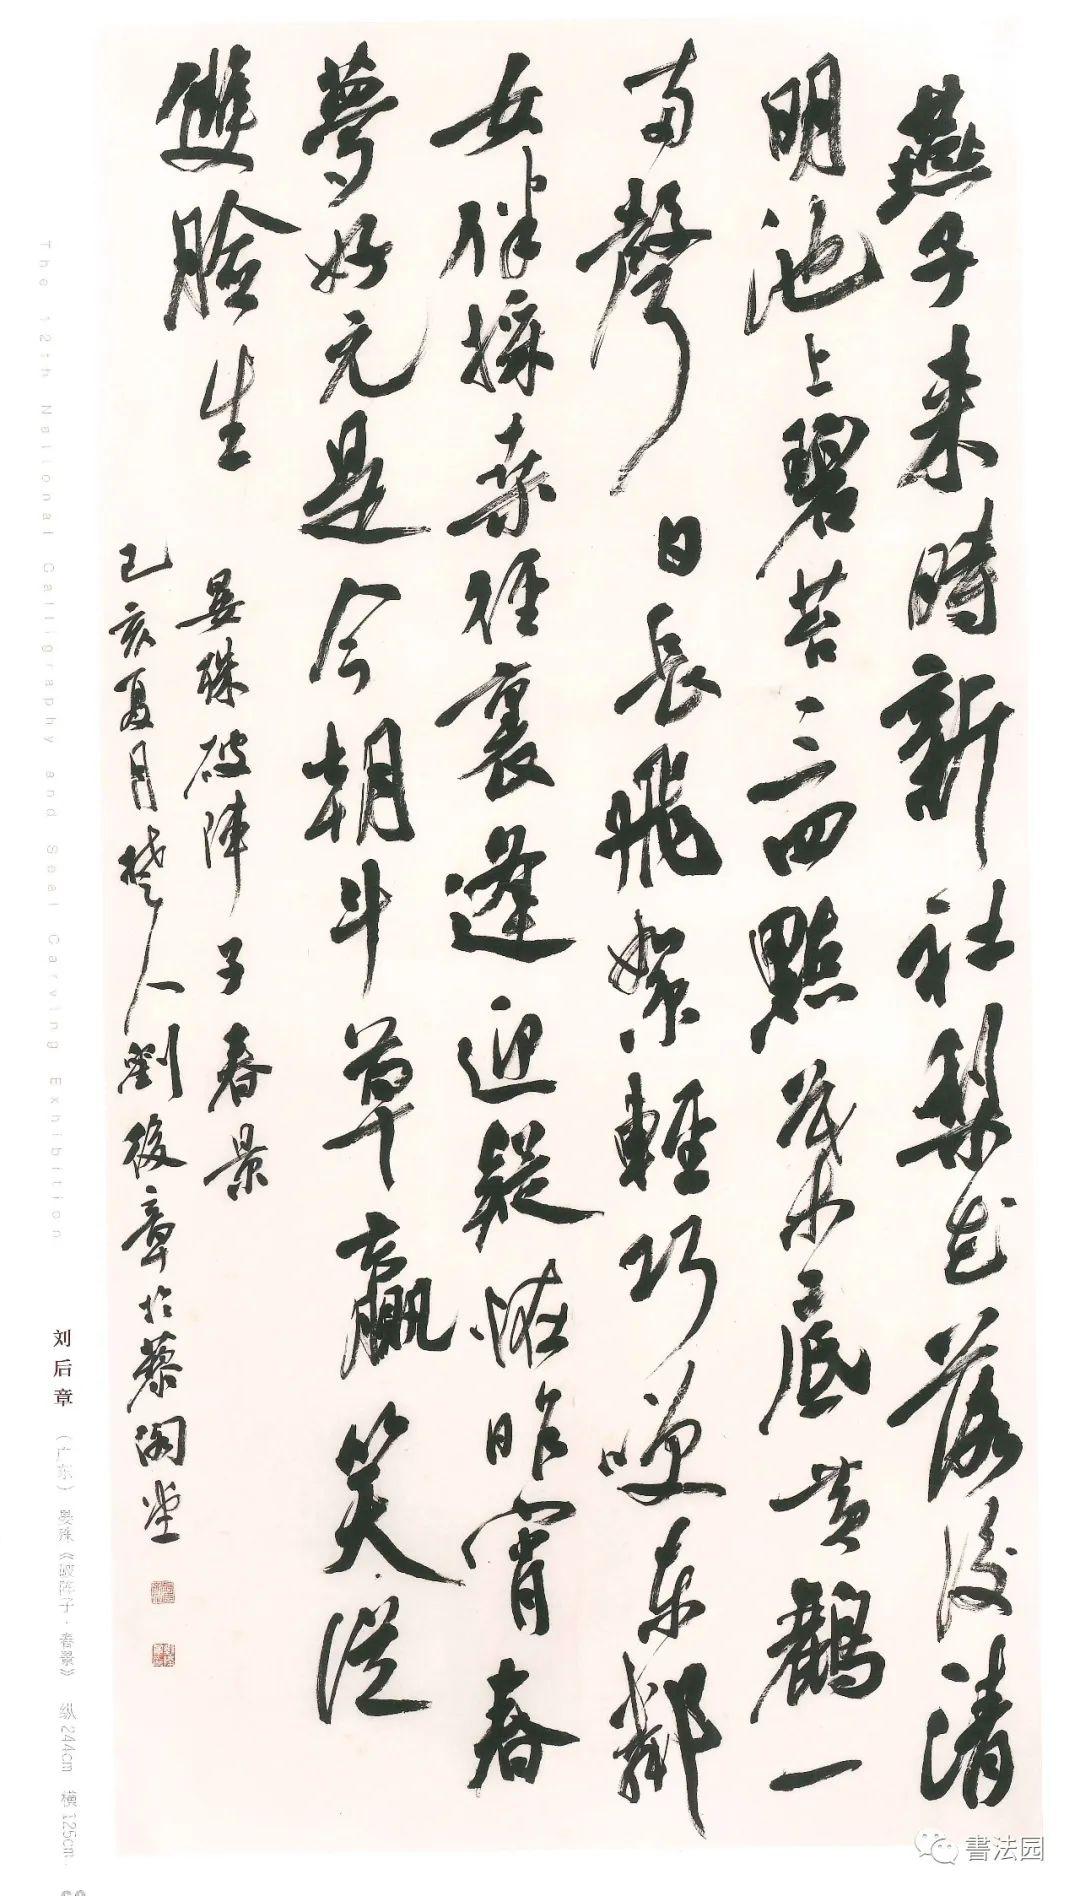 燕子来時新社梨花落後清
明池上碧苔三四點葉底黄鸝一
两聲 日長飛絮輕巧咲東鄰
女伴採桒徑裏逢迎疑怪昨宵春
夢好元是今朝斗草贏笑從
雙臉生
晏殊破陣子春景
己亥夏月楚人劉後章於藜閣堂
The 12th National Calligraphy and Seal Carving Exhibition
刘后章 （广东） 晏殊《破阵子·春景》 纵244cm 横125cm
書法园